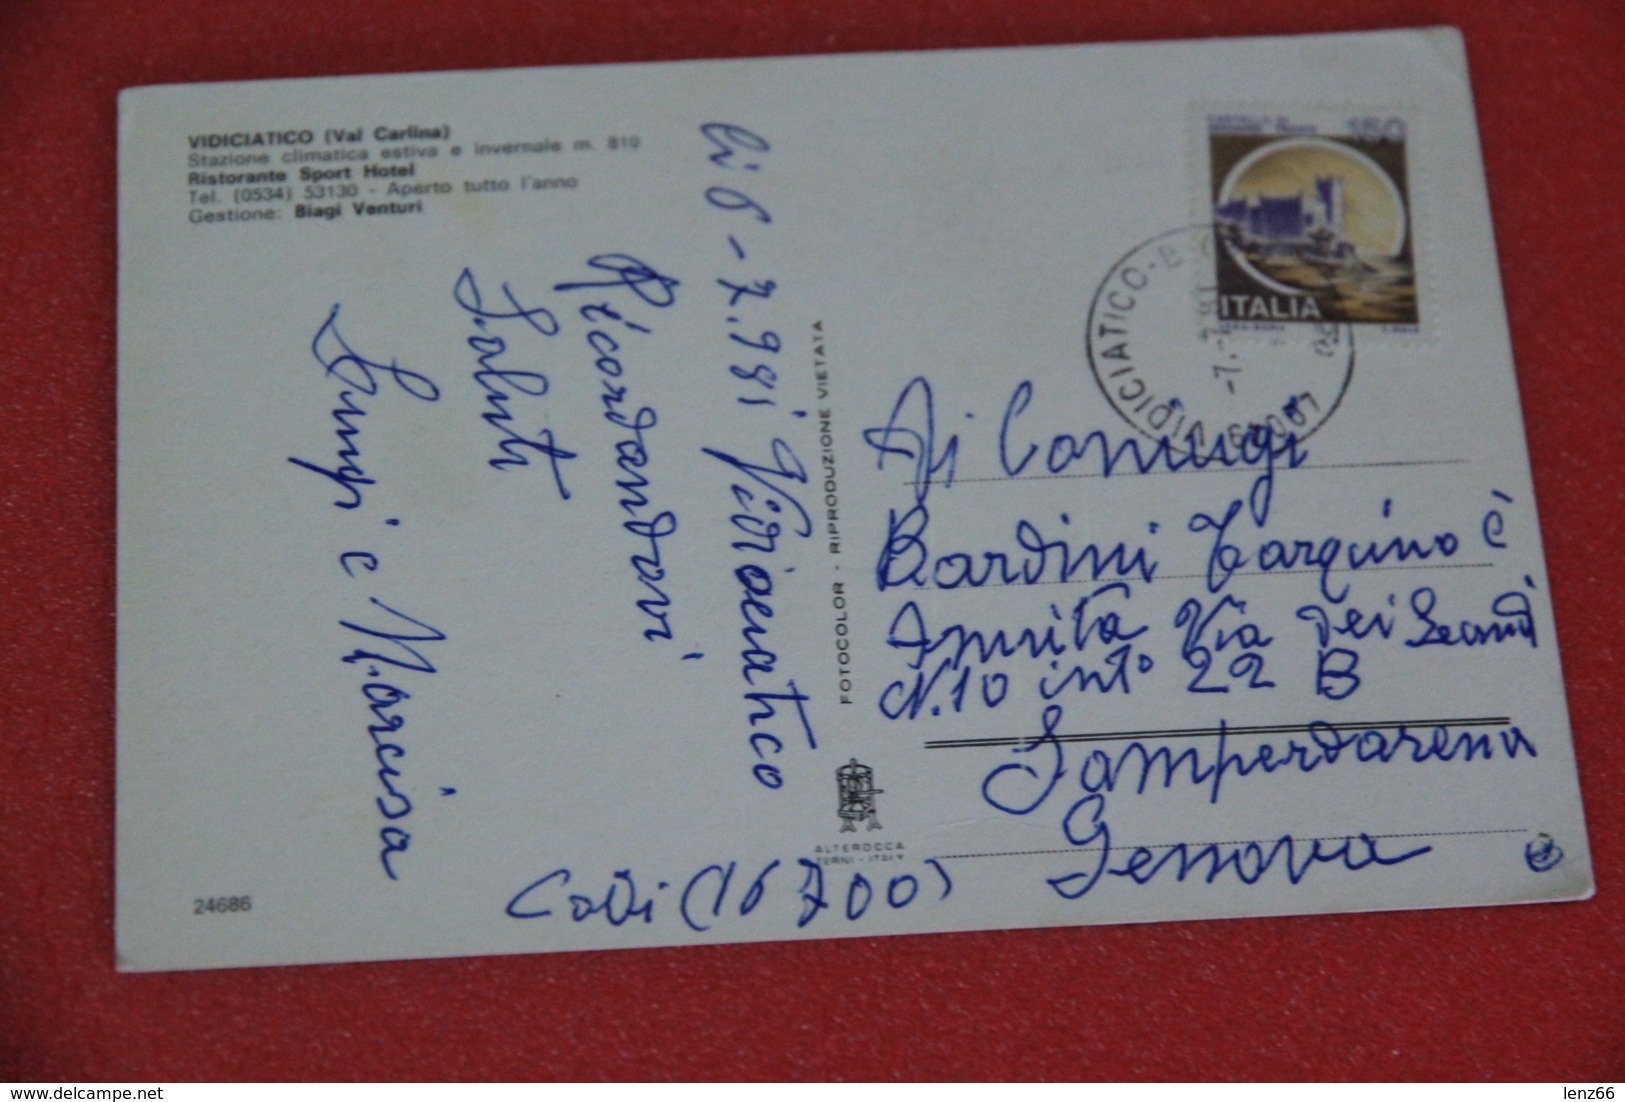 VIDICIATICO (Val Carlina)
Stazione climatica estiva e invernale m. 810
Ristorante Sport Hotel
Tel. (0534) 53130 - Aperto tutto l'anno
Gestione: Biagi Venturi
li 6 - 7.981 Vidiciatico
Ricordandovi
Saluti
Luigi e Narcisa
FOTOCOLOR - RIPRODUZIONE VIETATA
ALTEROCCA
TERNI - ITALY
24686
CASTELLO DI
150
ITALIA
VIDICIATICO - B
Ai Coniugi
Bardini Tarquino e
Annita Via dei
N.10 int° 22 B
Samperdarena
Genova
Codi (16700)
lenz66